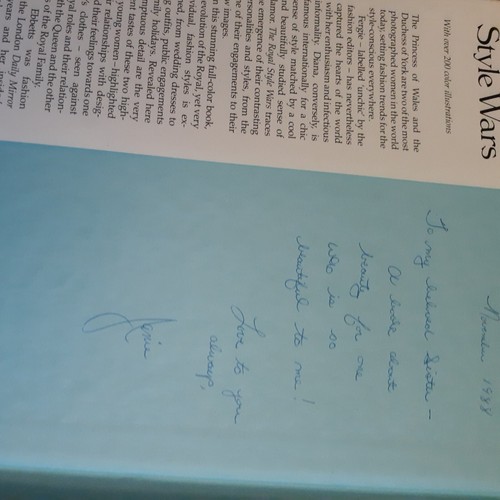 Style Wars
With over 200 color illustrations
The Princess of Wales and the
Duchess of York are two of the most
photographed women in the world
today, setting fashion trends for the
style-conscious everywhere.
Fergie – labelled 'unchic' by the
fashion editors – has nevertheless
captured the hearts of the world
with her enthusiasm and infectious
informality. Diana, conversely, is
famous internationally for a chic
sense of style matched by a cool
and beautifully studied sense of
lamor. The Royal Style Wars traces
e emergence of their contrasting
rsonalities and styles, from the
e of their engagements to their
outings
n this stunning full-color book,
evolution of the Royal, yet very
vidual, fashion styles is ex-
ned, from wedding dresses to
g outfits, public engagements
ily holidays. Revealed here
mptuous detail are the very
ent tastes of these two high-
young women – highlighted
ir relationships with desig-
d their feelings towards one
clothes – seen against
alities and their relation-
th the Queen and the other
s of the Royal Family.
Ebbetts was fashion
the London Daily Mirror
years and her
November 1988
To my beloved Sister –
A book about
beauty for one
who is so
beautiful to me!
Love to you
always,